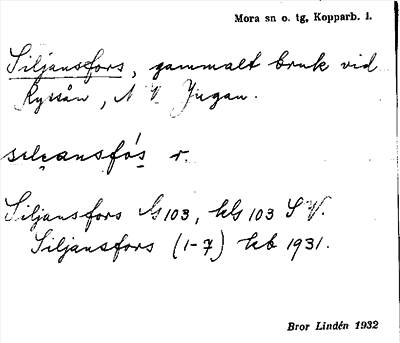 Mora sn o. tg, Kopparb. l.
Siljansfors, gammalt bruk vid
Ryssån, N V Jugan.
silansfo̍s r.
Siljansfors G 103, kG 103 S V.
Siljansfors (1-7) kb 1931.
Bror Lindén 1932